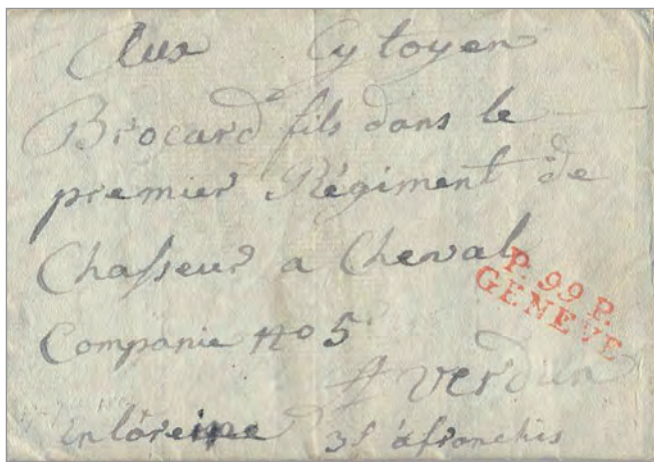 Aux Cytoyen
Brocard fils dans le
premier Régiment de
Chasseur a Cheval
P. 99 P.
GENEVE
Companie No 5
A verdun
en loreine 3s afranchis